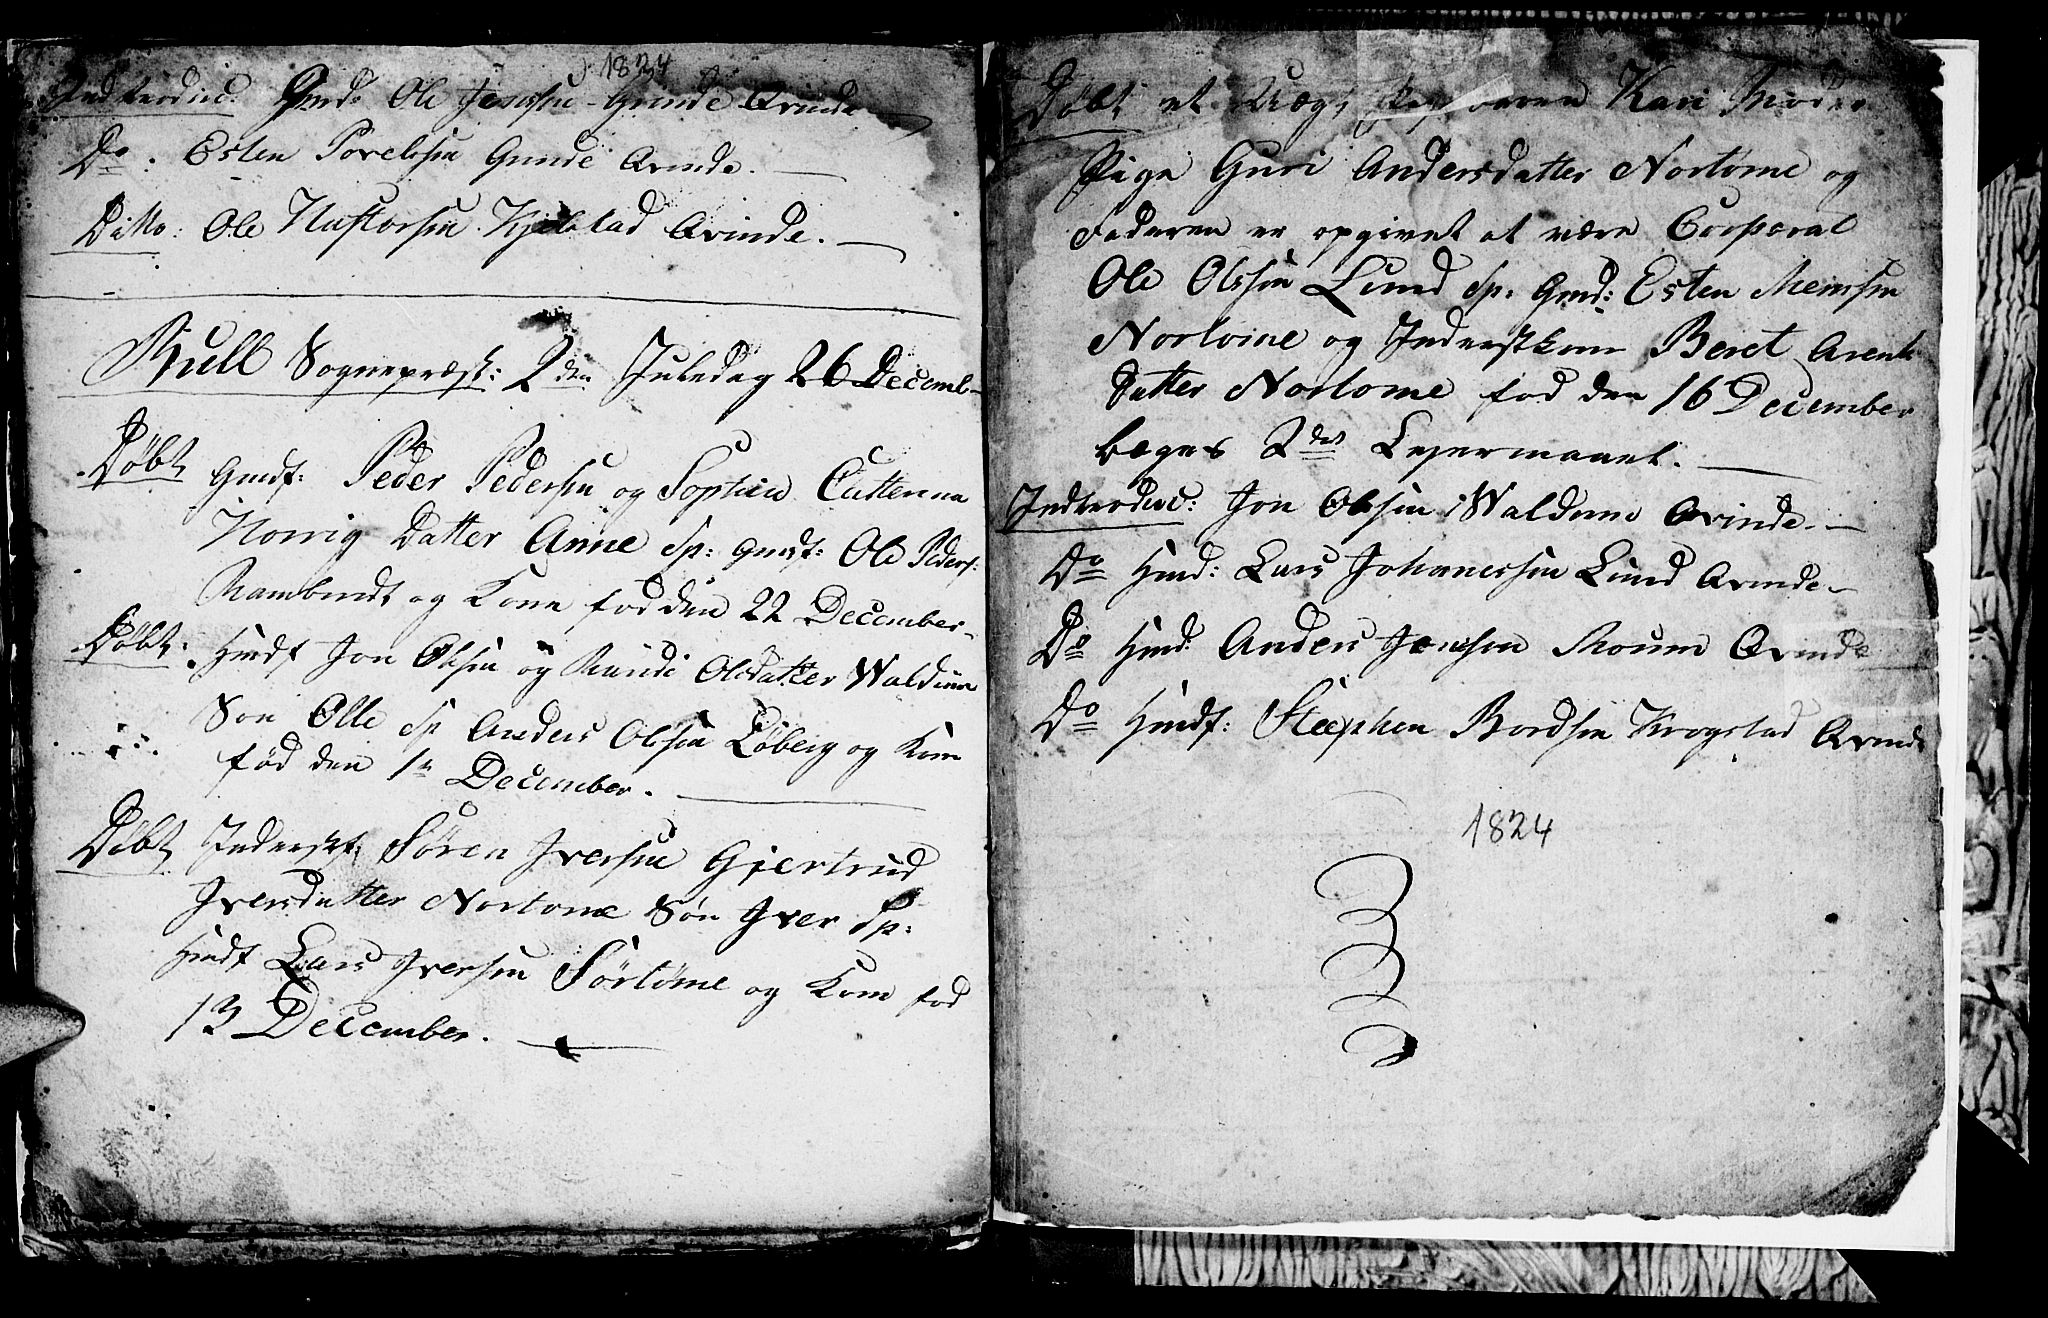 1824
Indtrodue: Gmd: Ole Jensen Grinde Qvinde
Do. Esten Povelsen Grinde Qvinde.
Ditto: Ole Hastorsen Kjelstad Qvinde.
Bull Sognepræst: 2den Juledag 26 Decemb
Døbt Gmdf: Peder Pedersen og Sophia Catterina
Horrig Datter Anne Sp: Gmdf: Ole Peders:
Rambendt og Kone fød den 22 December
Døbt: Hmdf Jon Olsen og Randi Olsdatter Waldum
Søn Olle Sp Anders Olsen Løberg og Kone
fød den 1te December.
Døbt Inderst: Søren Iversen Gjertrud
Iversdatter Nortome Søn Iver Sp:
Hmdf Lars Iversen Sørtøme og Kone fød
13 December.
Døbt et Uægte Kari Moder
Pige Guri Andersdatter Nortome og
Faderen er opgivet at være Corporal
Ole Olsen Lund Sp: Gmd: Esten
Nortome og Inderstkone Beret Arent
Datter Nortome fød den 16 December
beges 2det Lejermaael.
Indtrodue: Jon Olsen Waldum Qvinde.
Do Hmd: Lars Johannessen Lund Qvinde
Do Hmd: Anders Jensen Moum Qvinde
Do Hmdf: Steephen Bordsen Krogstad Qvinde
1824